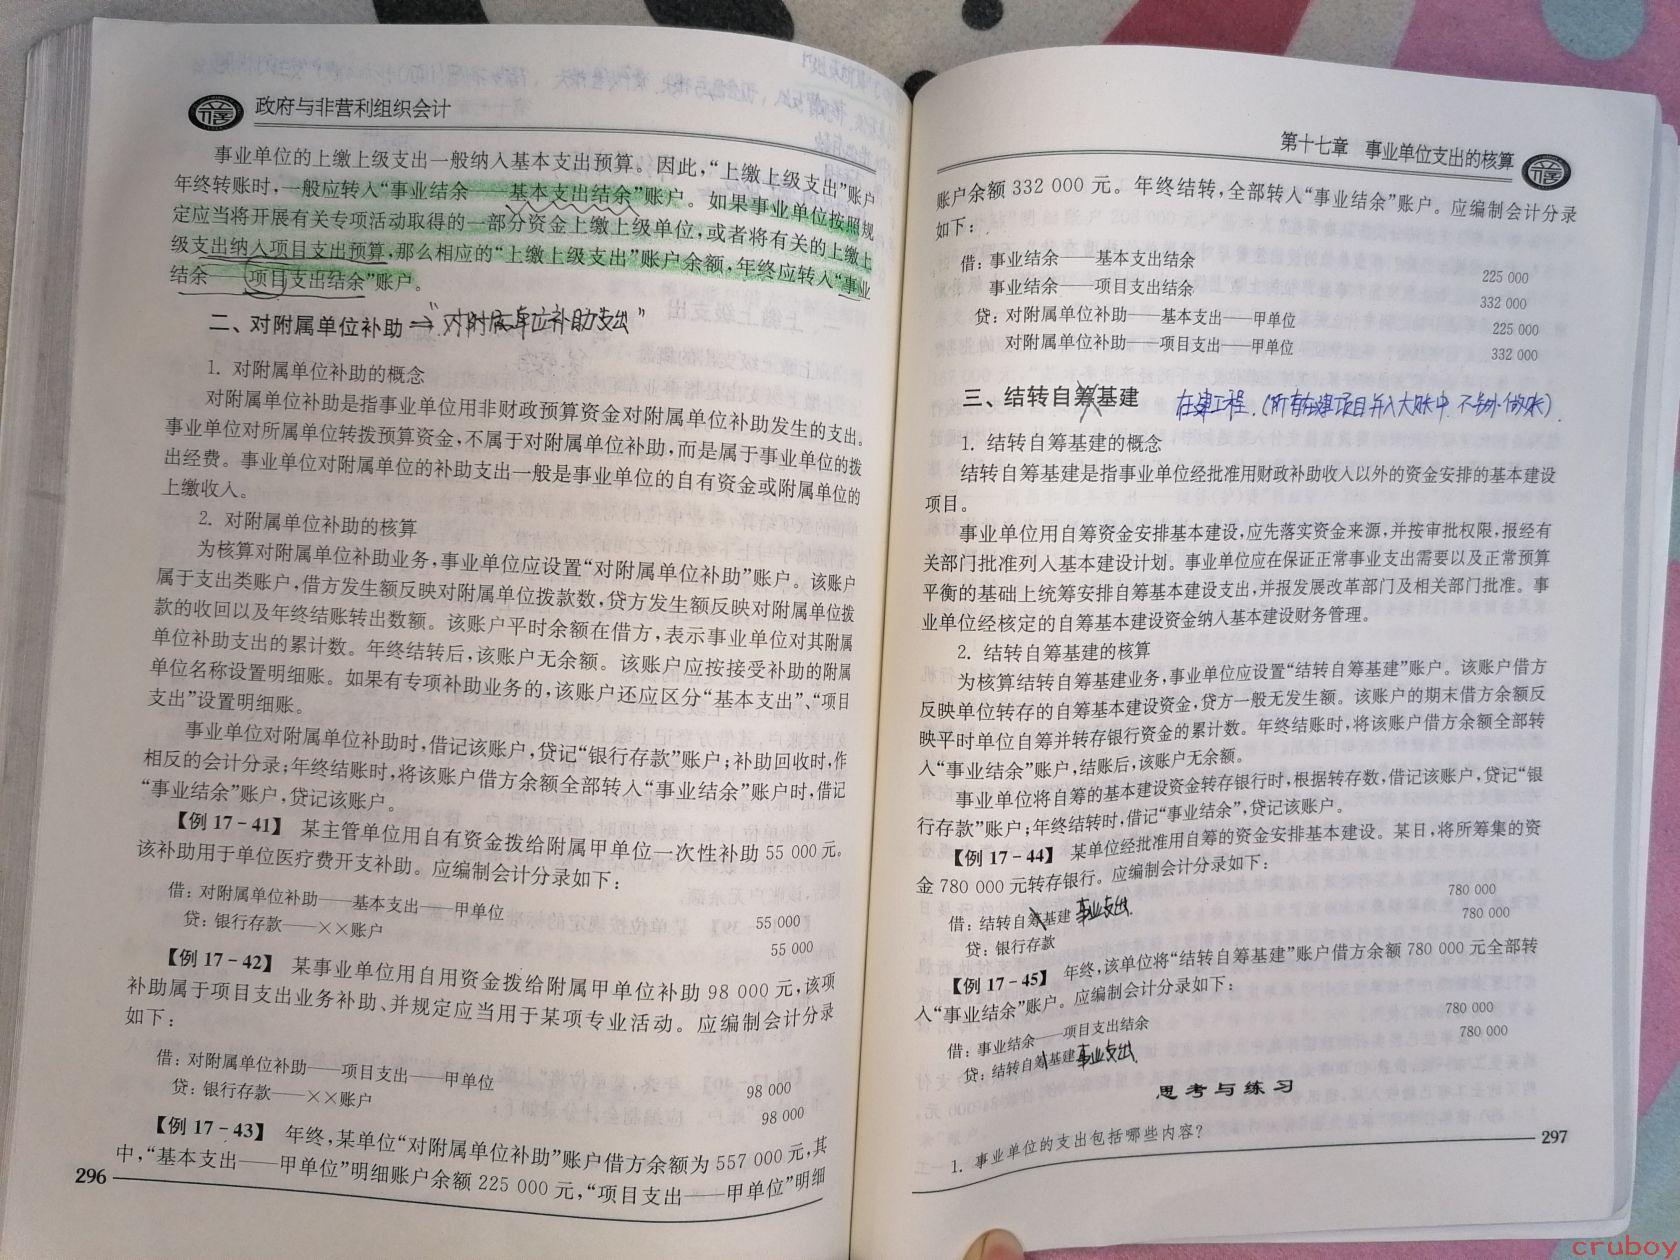 政府与非营利组织会计
事业单位的上缴上级支出一般纳入基本支出预算。因此，“上缴上级支出”账户
年终转账时，一般应转入“事业结余——基本支出结余”账户。如果事业单位按照规
定应当将开展有关专项活动取得的一部分资金上缴上级单位，或者将有关的上缴上
级支出纳入项目支出预算，那么相应的“上缴上级支出”账户余额，年终应转入“事业
结余——项目支出结余”账户。
二、对附属单位补助 → “对附属单位补助支出”
1. 对附属单位补助的概念
对附属单位补助是指事业单位用非财政预算资金对附属单位补助发生的支出。
事业单位对所属单位转拨预算资金，不属于对附属单位补助，而是属于事业单位的拨
出经费。事业单位对附属单位的补助支出一般是事业单位的自有资金或附属单位的
上缴收入。
2. 对附属单位补助的核算
为核算对附属单位补助业务，事业单位应设置“对附属单位补助”账户。该账户
属于支出类账户，借方发生额反映对附属单位拨款数，贷方发生额反映对附属单位拨
款的收回以及年终结账转出数额。该账户平时余额在借方，表示事业单位对其附属
单位补助支出的累计数。年终结转后，该账户无余额。该账户应按接受补助的附属
单位名称设置明细账。如果有专项补助业务的，该账户还应区分“基本支出”、“项目
支出”设置明细账。
事业单位对附属单位补助时，借记该账户，贷记“银行存款”账户；补助回收时，作
相反的会计分录；年终结账时，将该账户借方余额全部转入“事业结余”账户时，借记
“事业结余”账户，贷记该账户。
【例 17－41】 某主管单位用自有资金拨给附属甲单位一次性补助 55 000 元。
该补助用于单位医疗费开支补助。应编制会计分录如下：
借：对附属单位补助——基本支出——甲单位 55 000
贷：银行存款——××账户 55 000
【例 17－42】 某事业单位用自用资金拨给附属甲单位补助 98 000 元，该项
补助属于项目支出业务补助、并规定应当用于某项专业活动。应编制会计分录
如下：
借：对附属单位补助——项目支出——甲单位 98 000
贷：银行存款——××账户 98 000
【例 17－43】 年终，某单位“对附属单位补助”账户借方余额为 557 000 元，其
中，“基本支出——甲单位”明细账户余额 225 000 元，“项目支出——甲单位”明细
296
第十七章 事业单位支出的核算
账户余额 332 000 元。年终结转，全部转入“事业结余”账户。应编制会计分录
如下：
借：事业结余——基本支出结余 225 000
事业结余——项目支出结余 332 000
贷：对附属单位补助——基本支出——甲单位 225 000
对附属单位补助——项目支出——甲单位 332 000
三、结转自筹基建 在建工程.(所有在建项目并入大账中.不另外做账).
1. 结转自筹基建的概念
结转自筹基建是指事业单位经批准用财政补助收入以外的资金安排的基本建设
项目。
事业单位用自筹资金安排基本建设，应先落实资金来源，并按审批权限，报经有
关部门批准列入基本建设计划。事业单位应在保证正常事业支出需要以及正常预算
平衡的基础上统筹安排自筹基本建设支出，并报发展改革部门及相关部门批准。事
业单位经核定的自筹基本建设资金纳入基本建设财务管理。
2. 结转自筹基建的核算
为核算结转自筹基建业务，事业单位应设置“结转自筹基建”账户。该账户借方
反映单位转存的自筹基本建设资金，贷方一般无发生额。该账户的期末借方余额反
映平时单位自筹并转存银行资金的累计数。年终结账时，将该账户借方余额全部转
入“事业结余”账户，结账后，该账户无余额。
事业单位将自筹的基本建设资金转存银行时，根据转存数，借记该账户，贷记“银
行存款”账户；年终结转时，借记“事业结余”，贷记该账户。
【例 17－44】 某单位经批准用自筹的资金安排基本建设。某日，将所筹集的资
金 780 000 元转存银行。应编制会计分录如下：
借：结转自筹基建 事业支出 780 000
贷：银行存款 780 000
【例 17－45】 年终，该单位将“结转自筹基建”账户借方余额 780 000 元全部转
入“事业结余”账户。应编制会计分录如下：
借：事业结余——项目支出结余 780 000
贷：结转自筹基建 事业支出 780 000
思考与练习
1. 事业单位的支出包括哪些内容？
297
cruboy